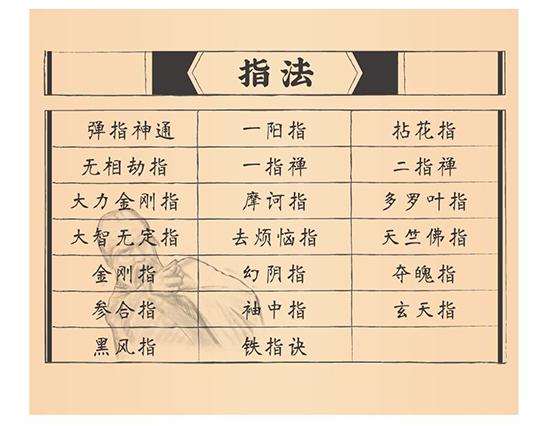 指法
弹指神通 一阳指 拈花指
无相劫指 一指禅 二指禅
大力金刚指 摩诃指 多罗叶指
大智无定指 去烦恼指 天竺佛指
金刚指 幻阴指 夺魄指
参合指 袖中指 玄天指
黑风指 铁指诀